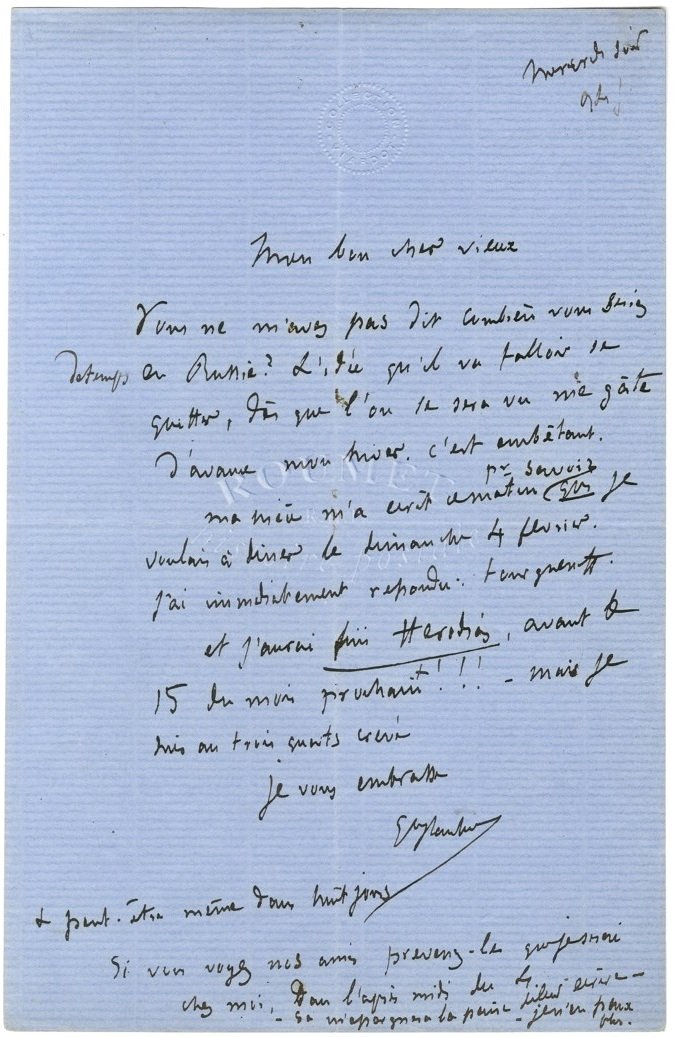 mercredi soir
COLLECTION VIARDOT
Mon bon cher vieux
Vous ne m'avez pas dit combien vous seriez
de temps en Russie? L'idée qu'il va falloir se
quitter, dès que l'on se sera vu me gâte
d'avance mon hiver. c'est embêtant.
ROUMET
pr savoir
ma nièce m'a écrit ce matin qui je
voulais à diner le dimanche 4 fevrier.
J'ai immédiatement repondu: tourgueneff.
et j'aurai fini Herodias, avant le
15 du mois prochain! !! - mais je
suis au trois quarts crevé
je vous embrasse
GveFlaubert
& peut-être même dans huit jours
Si vous voyez nos amis prevenez-les que je serai
chez moi, dans l'après midi du 4
- ça m'épargnera la peine de leur écrire -
- je n'en peux
plus.